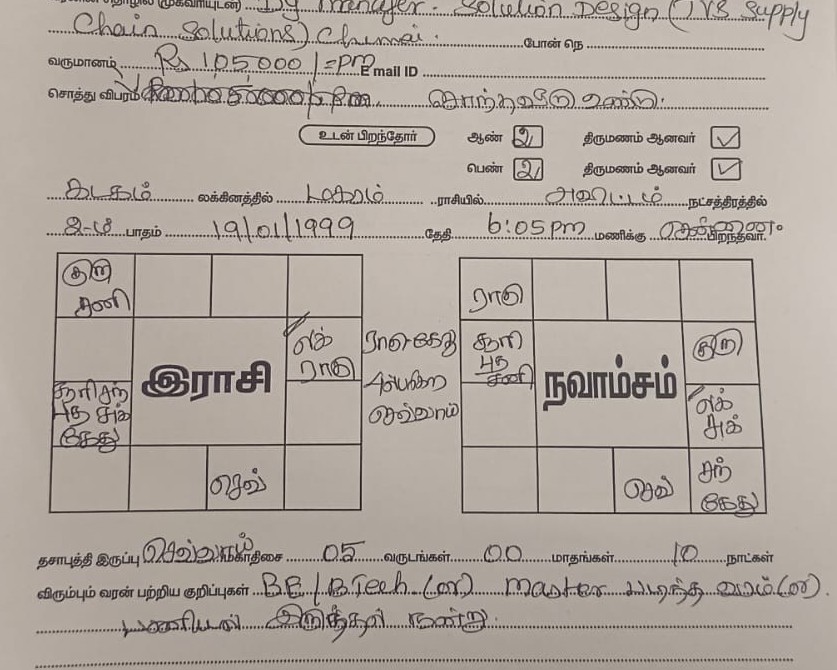 Dy manager. Solution Design (TVS Supply
Chain Solutions) Chennai. போன் நெ
வருமானம் Rs 1,05,000/= pm E mail ID
சொத்து விபரம் சொந்தவீடு உண்டு.
உடன் பிறந்தோர் ஆண் 2 திருமணம் ஆனவர் ✓
பெண் 2 திருமணம் ஆனவர் ✓
கடகம் லக்கினத்தில் மகரம் ராசியில் அவிட்டம் நட்சத்திரத்தில்
2-ம் பாதம் 19/01/1999 தேதி 6:05pm மணிக்கு பிறந்தவர்.
குரு
சனி
லக்
ராகு
சூரி சந்
புத சுக்
கேது
செவ்
இராசி
ராகு கேது
செவ்வாய்
ராகு
சூரி
புத
சனி
குரு
லக்
சுக்
செவ்
சந்
கேது
நவாம்சம்
தசாபுத்தி இருப்பு செவ்வாய் மகாதிசை 05 வருடங்கள் 00 மாதங்கள் 10 நாட்கள்
விரும்பும் வரன் பற்றிய குறிப்புகள் BE / B.Tech (or) master படித்த வரம் (or)
பணியில் இருத்தல் நன்று.